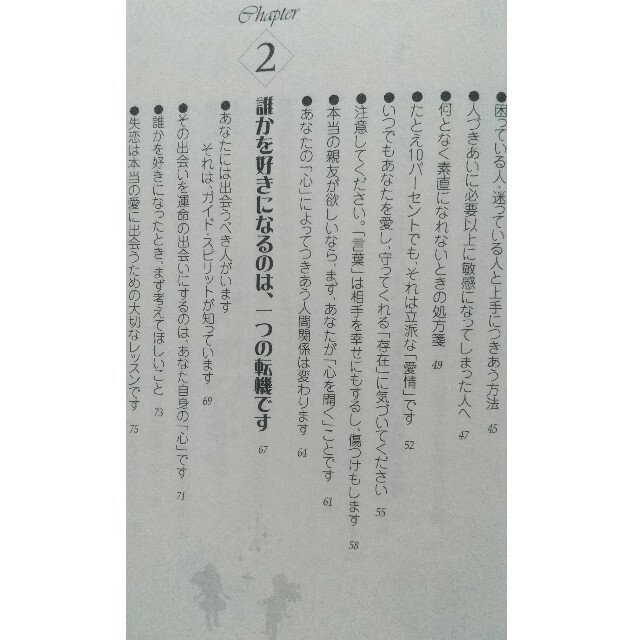 ●困っている人・迷っている人と上手につきあう方法 45
●人づきあいに必要以上に敏感になってしまった人へ 47
●何となく素直になれないときの処方箋 49
●たとえ10パーセントでも、それは立派な「愛情」です 52
●いつでもあなたを愛し、守ってくれる「存在」に気づいてください 55
●注意してください。「言葉」は相手を幸せにもするし、傷つけもします 58
●本当の親友が欲しいなら、まず、あなたが「心を開く」ことです 61
●あなたの「心」によってつきあう人間関係は変わります 64
Chapter
2
誰かを好きになるのは、一つの転機です 67
●あなたには出会うべき人がいます
それは、ガイド・スピリットが知っています 69
●その出会いを運命の出会いにするのは、あなた自身の「心」です 71
●誰かを好きになったとき、まず考えてほしいこと 73
●失恋は本当の愛に出会うための大切なレッスンです 75